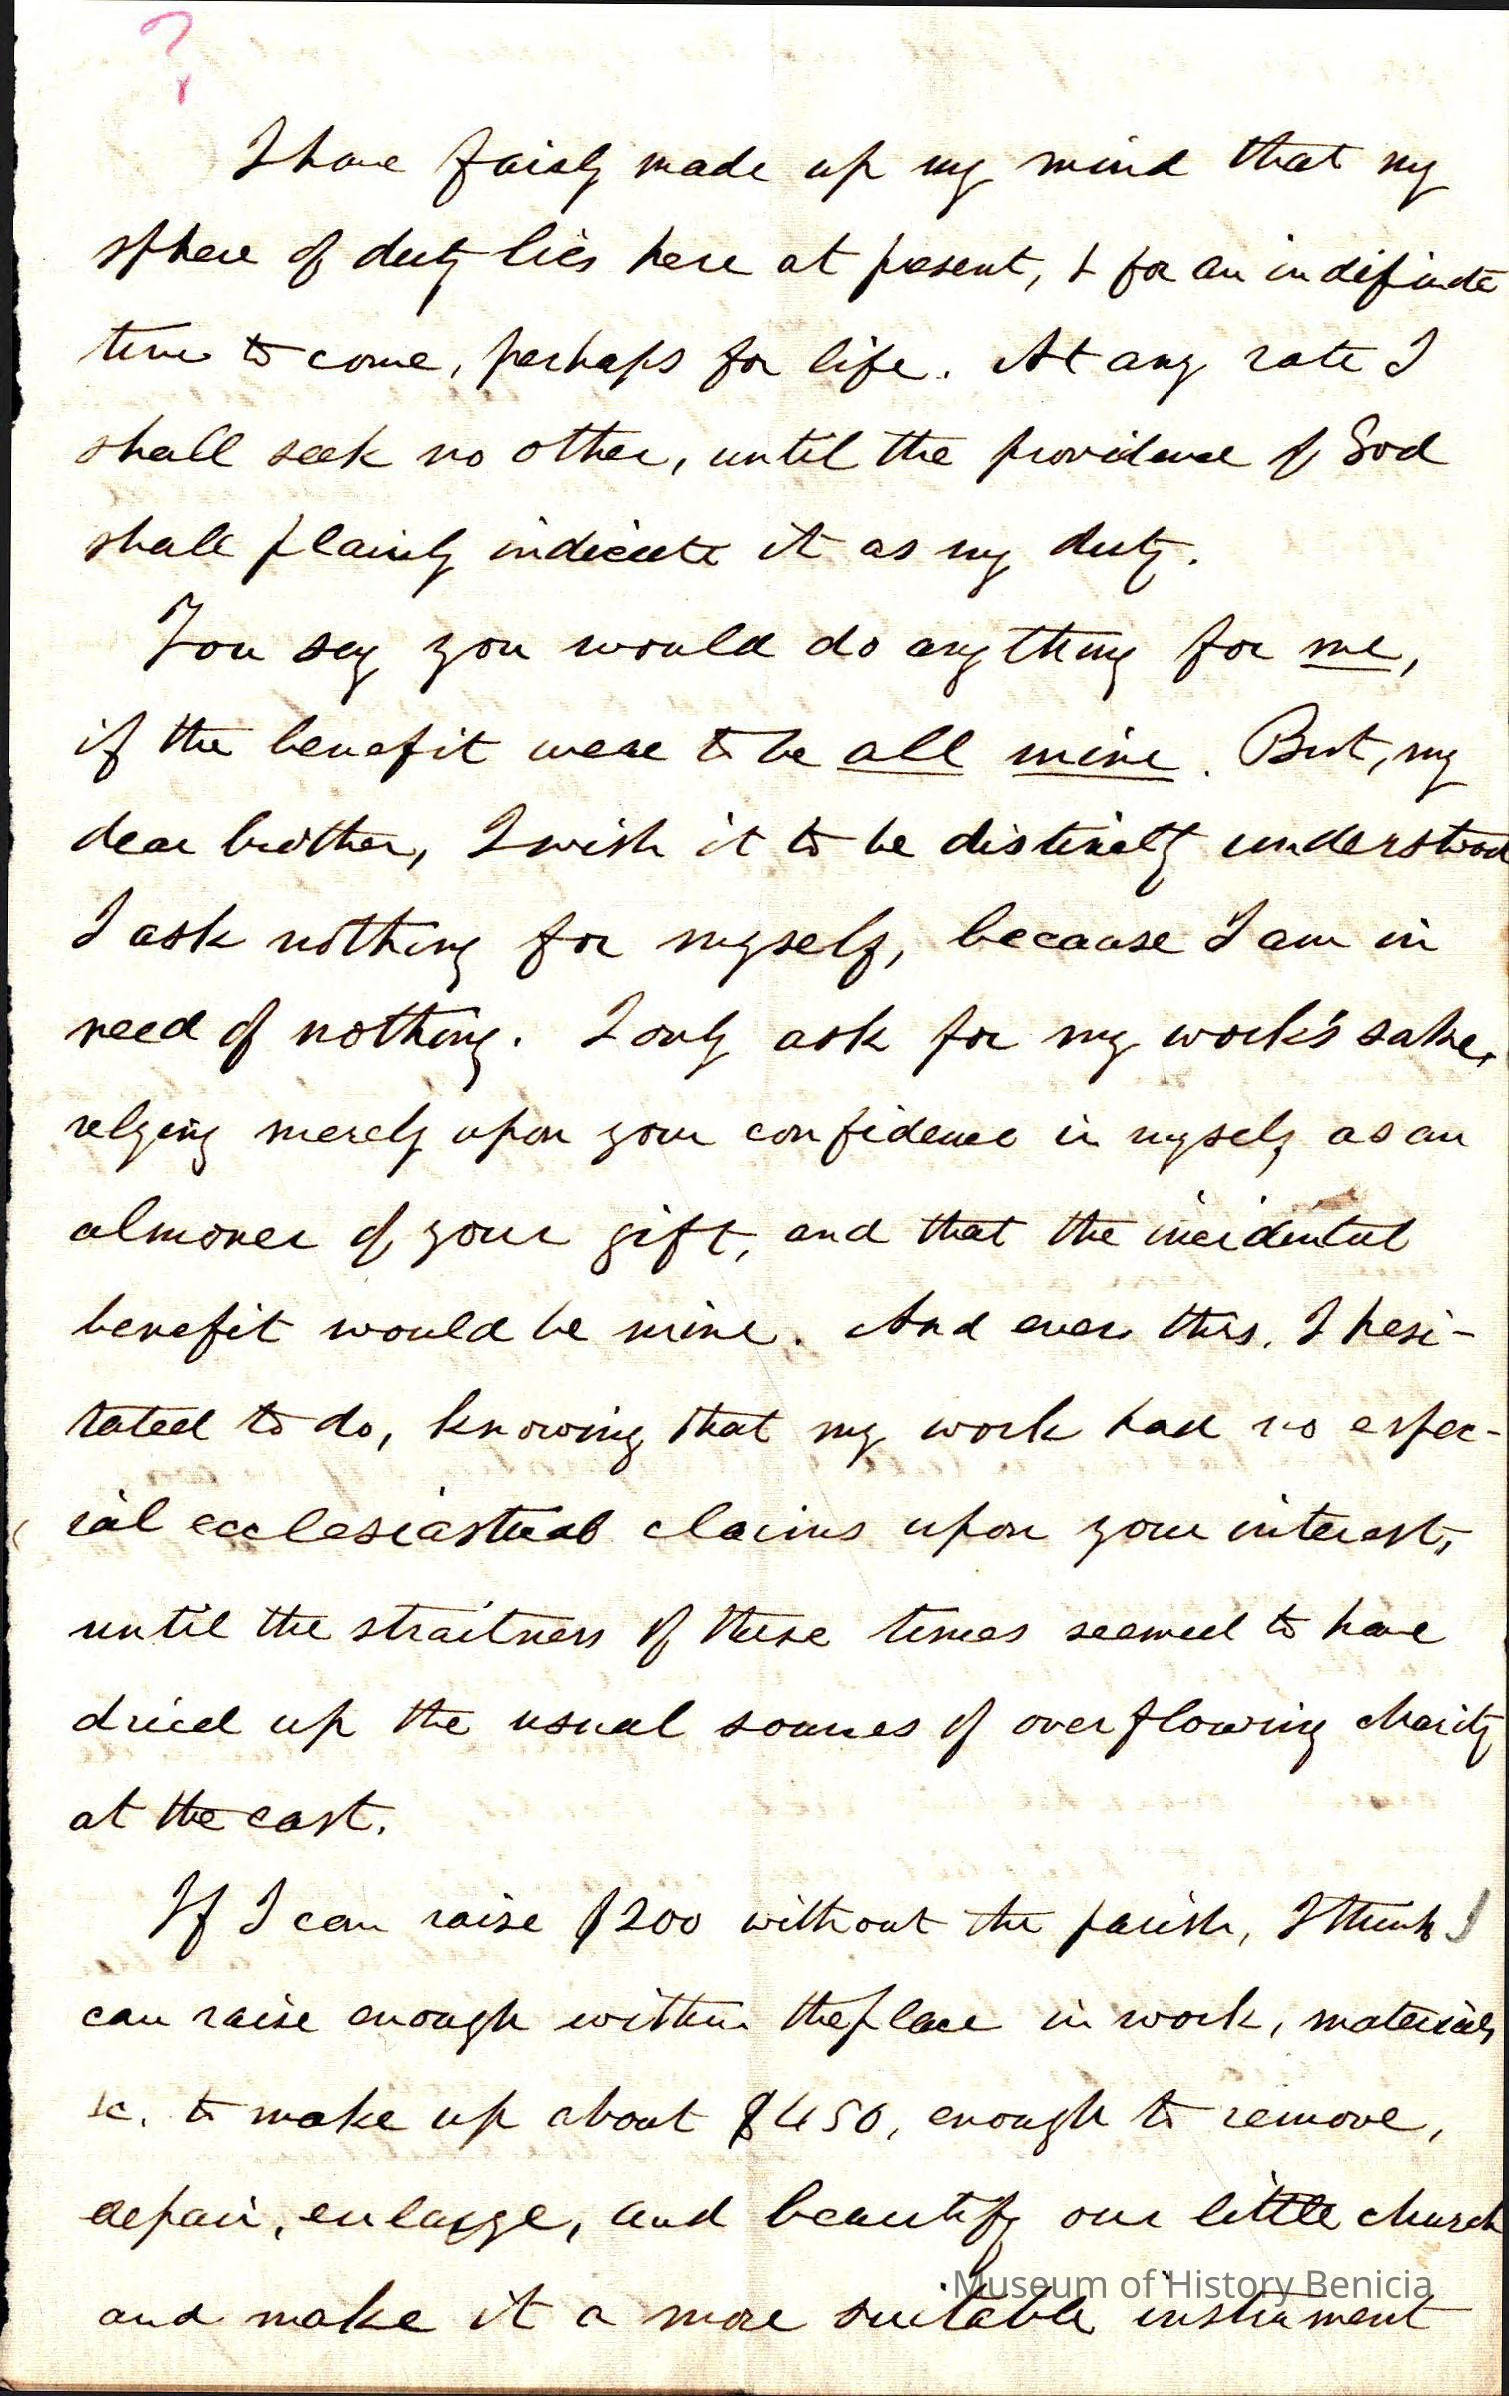 ?
I have fairly made up my mind that my
sphere of duty lies here at present, & for an indefinite
time to come, perhaps for life. At any rate I
shall seek no other, until the providence of God
shall plainly indicate it as my duty.
You say you would do anything for me,
if the benefit were to be all mine. But, my
dear brother, I wish it to be distinctly understood
I ask nothing for myself, because I am in
need of nothing. I only ask for my work's sake,
relying merely upon your confidence in myself as an
almoner of your gift, and that the incidental
benefit would be mine. And even this, I hesi-
tated to do, knowing that my work had no espec-
ial ecclesiastical claims upon your interest,
until the straitness of these times seemed to have
dried up the usual sources of overflowing charity
at the east.
If I can raise $200 without the parish, I think I
can raise enough within the place in work, materials
&c. to make up about $450, enough to remove,
repair, enlarge, and beautify our little church
Museum of History Benicia
and make it a more suitable instrument